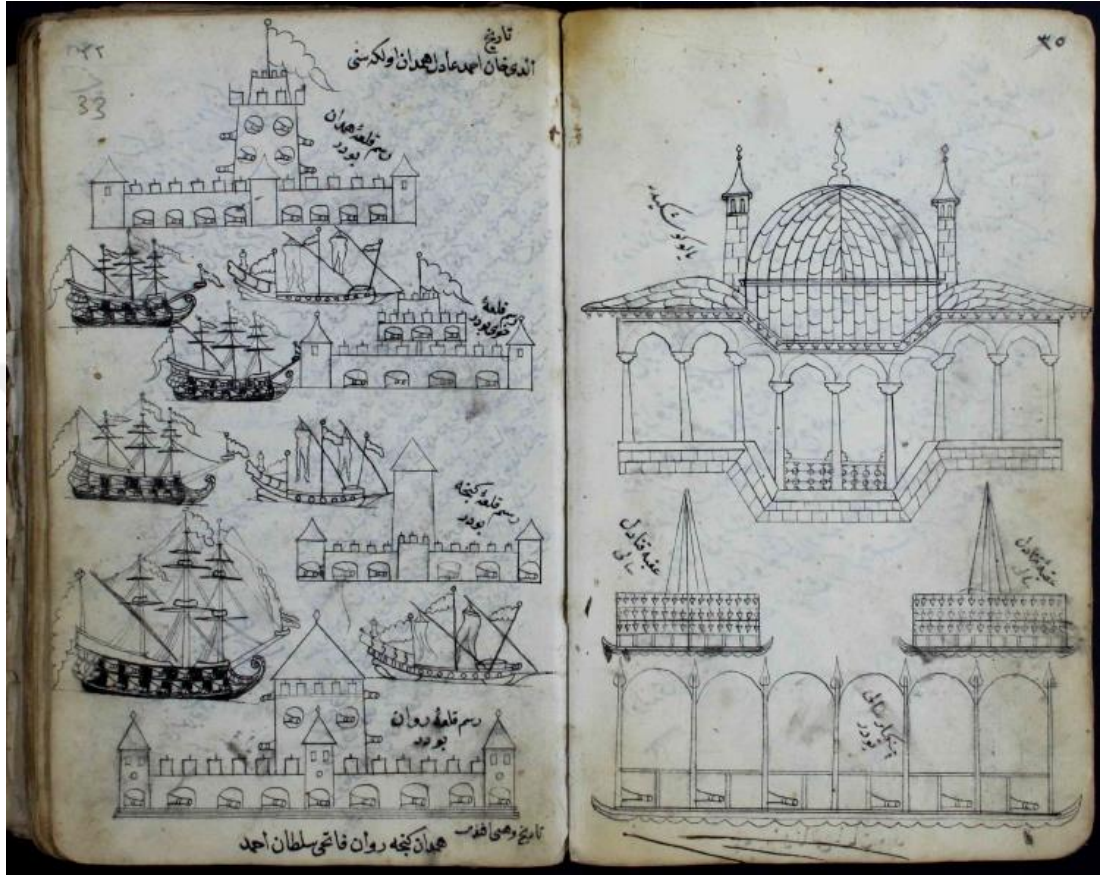 تاريخ
الدى خان احمد عادل همدان اولكه سنى
٣٣
33
رسم قلعهٔ همدان
بودر
رسم قلعهٔ
خوى بودر
رسم قلعهٔ كنجه
بودر
رسم قلعهٔ روان
بودر
تاريخ وهبى افندى
همدان كنجه روان فاتحى سلطان احمد
٣٥
عقبه قنادل
سالى
عقبه قنادل
سالى
بودر